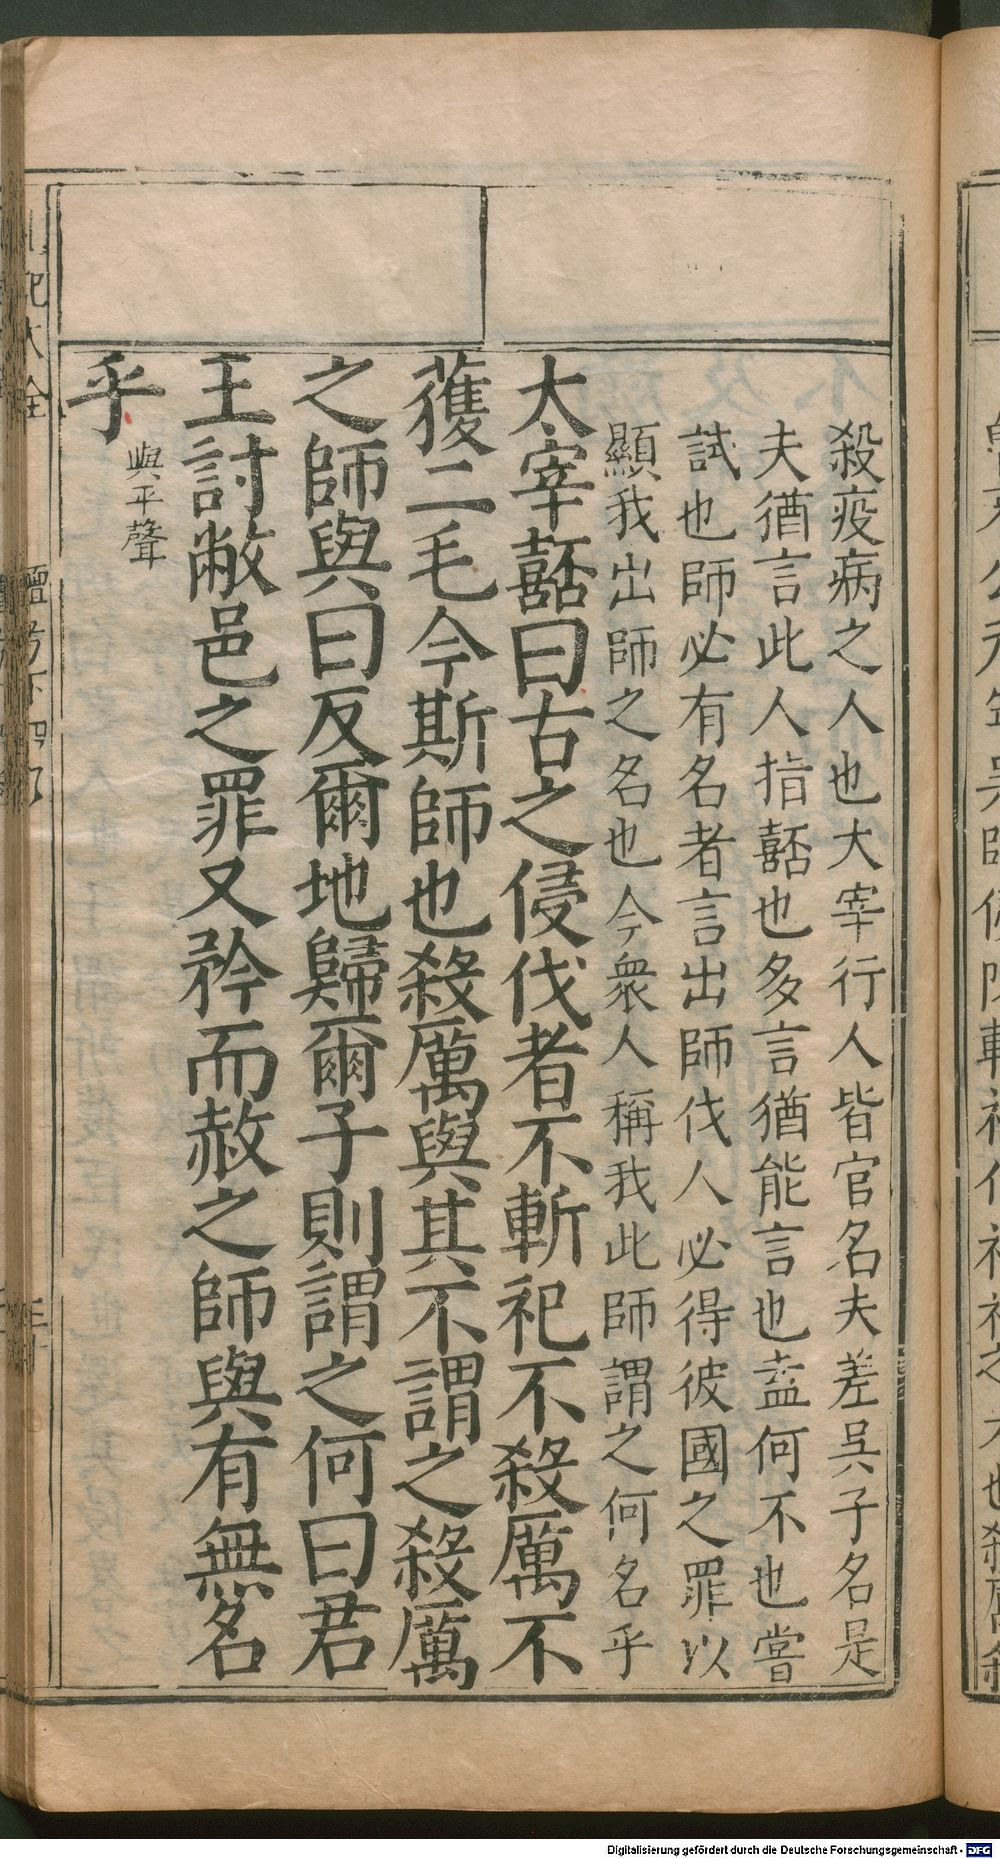 殺疫病之人也大宰行人皆官名夫差吳子名是
夫猶言此人指嚭也多言猶能言也盍何不也嘗
試也師必有名者言出師伐人必得彼國之罪以
顯我出師之名也今衆人稱我此師謂之何名乎
太宰嚭曰古之侵伐者不斬祀不殺厲不
獲二毛今斯師也殺厲與其不謂之殺厲
之師與曰反爾地歸爾子則謂之何曰君
王討敝邑之罪又矜而赦之師與有無名
乎
與平聲
Digitalisierung gefördert durch die Deutsche Forschungsgemeinschaft - DFG